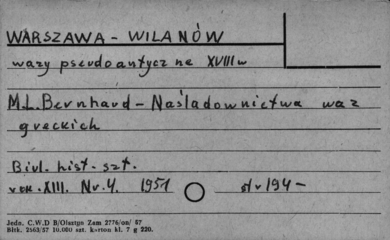 WARSZAWA - WILANÓW
wazy pseudoantyczne XVIII w
M.L. Bernhard - Naśladownictwa waz
greckich
Biul. hist. szt.
rok .XIII. Nr. 4. 1951 str 194-
Jedn. C.W.D B/Olsztyn Zam 2776/on/ 57
Bltk. 2563/57 10.000 szt. karton kl. 7 g 220.